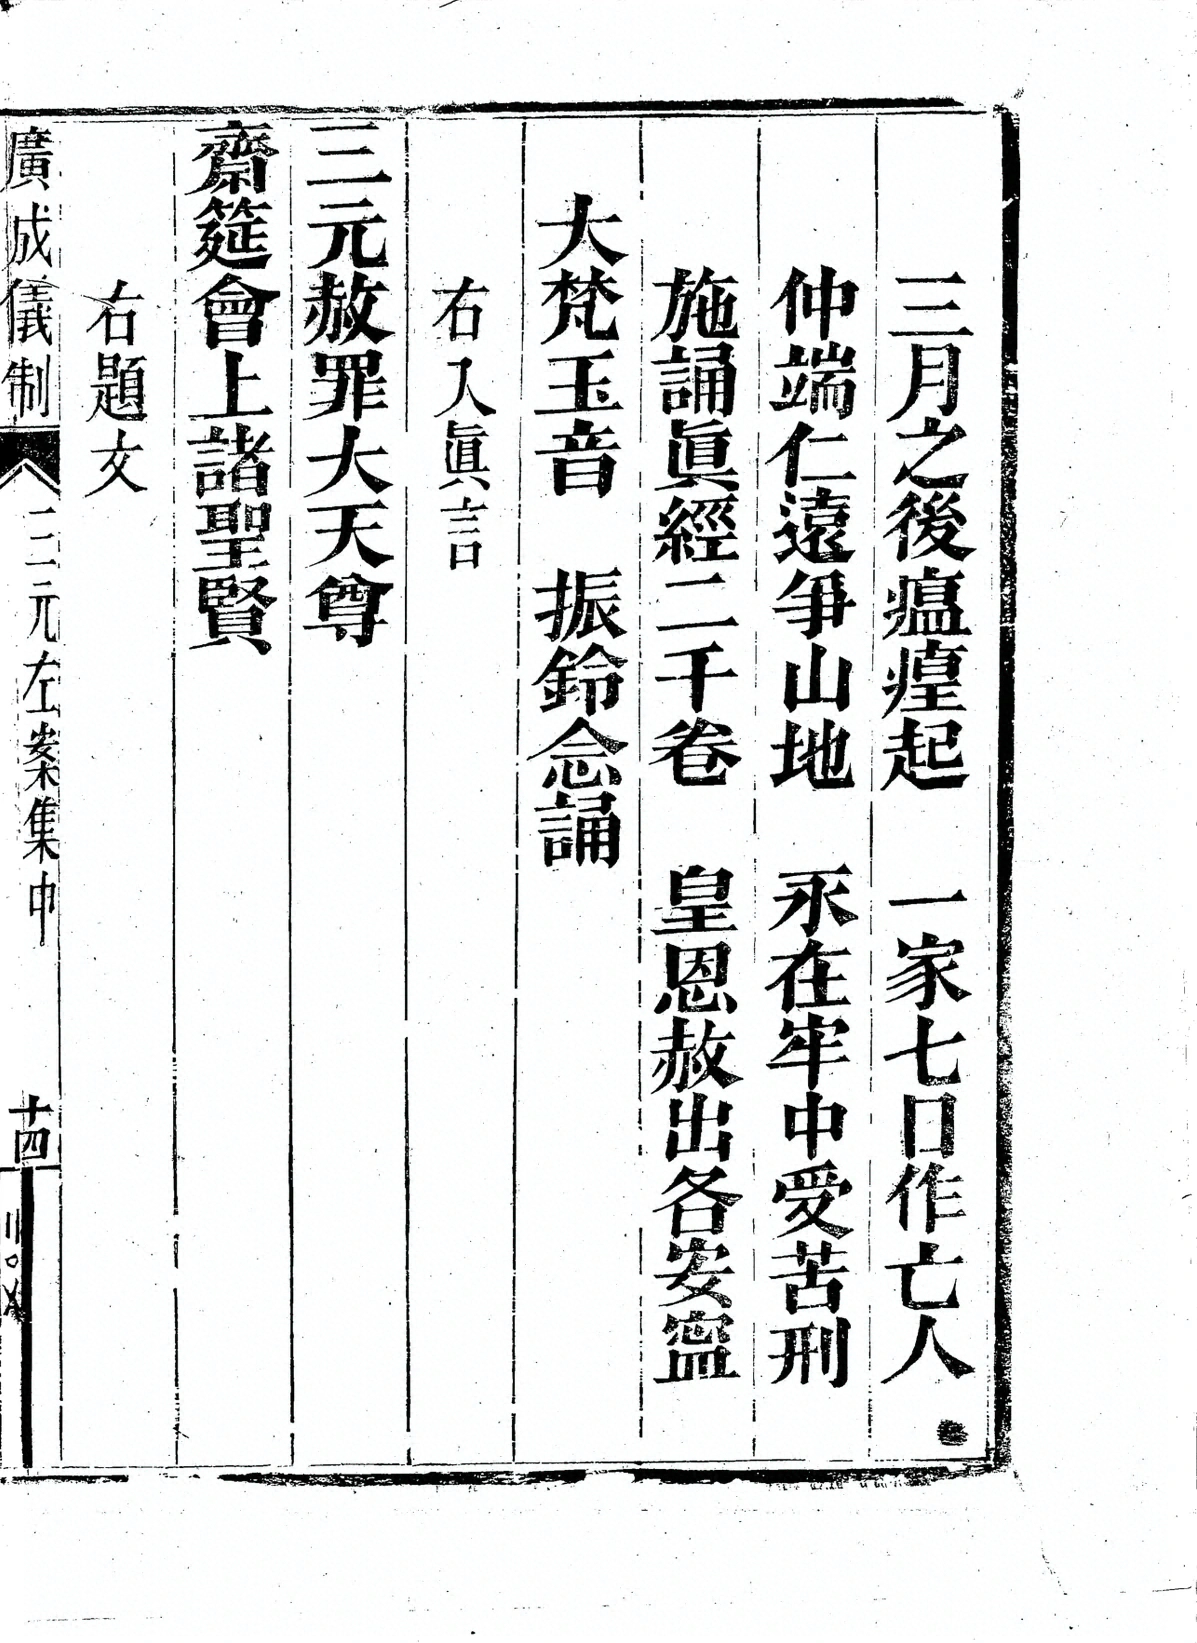 三月之後瘟㾮起　一家七日作亡人
仲端仁遠爭山地　永在牢中受苦刑
施誦眞經二千卷　皇恩赦出各安寧
大梵玉音　振鈴念誦
右入眞言
三元赦罪大天尊
齋筵會上諸聖賢
右題文
廣成儀制　三元左案集中　十四